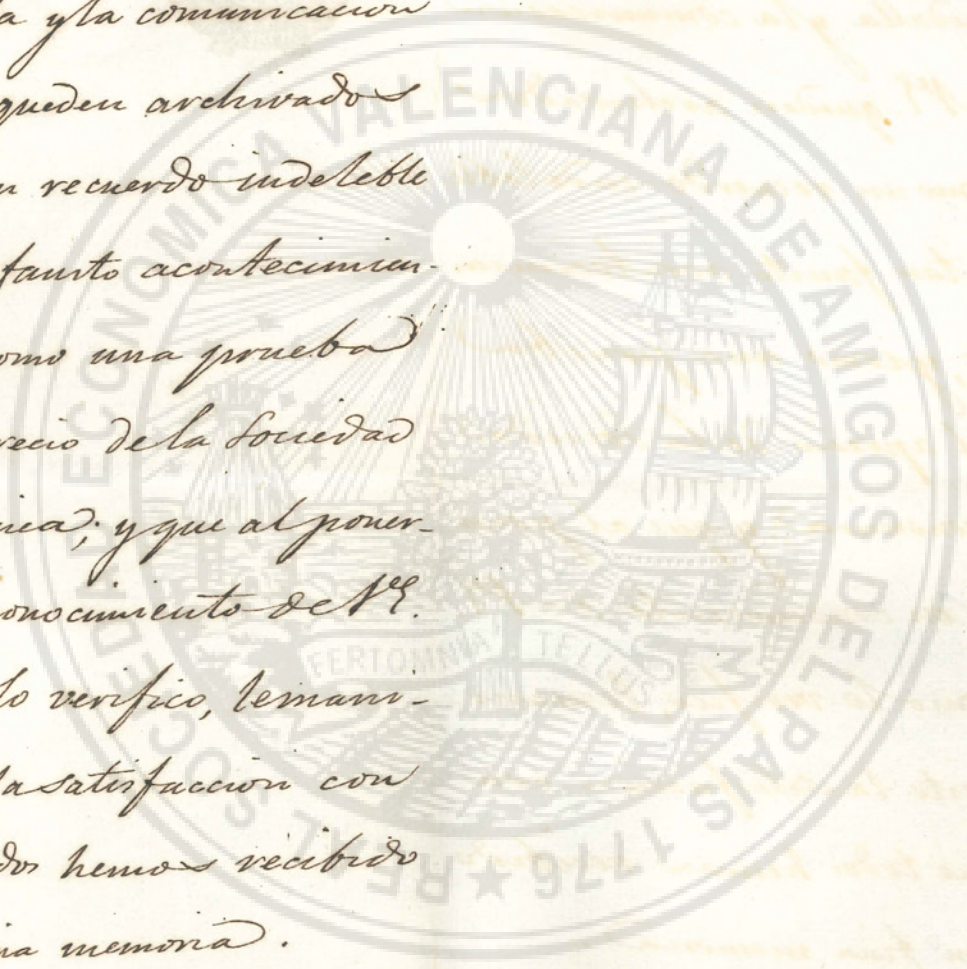 a y la comunicacion
queden archivados
n recuerdo indeleble
fausto acontecimien-
omo una prueba
recio de la Sociedad
ica; y que al poner-
onocimiento de V.E.
lo verifico, le mani-
la satisfaccion con
dos hemos recibido
na memoria.
REAL SOCIEDAD ECONOMICA VALENCIANA DE AMIGOS DEL PAÍS 1776
FERT OMNIA TELLUS